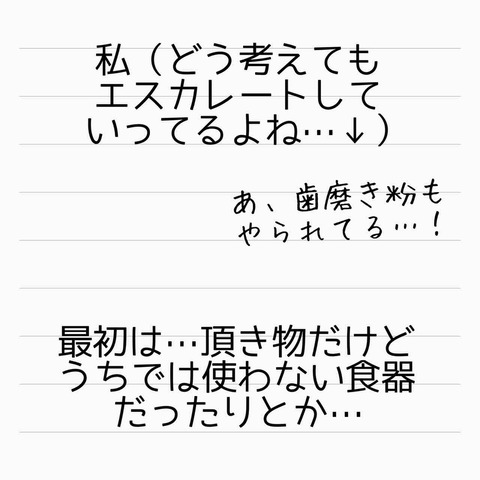 私（どう考えても
エスカレートして
いってるよね…↓）
あ、歯磨き粉も
やられてる…！
最初は…頂き物だけど
うちでは使わない食器
だったりとか…